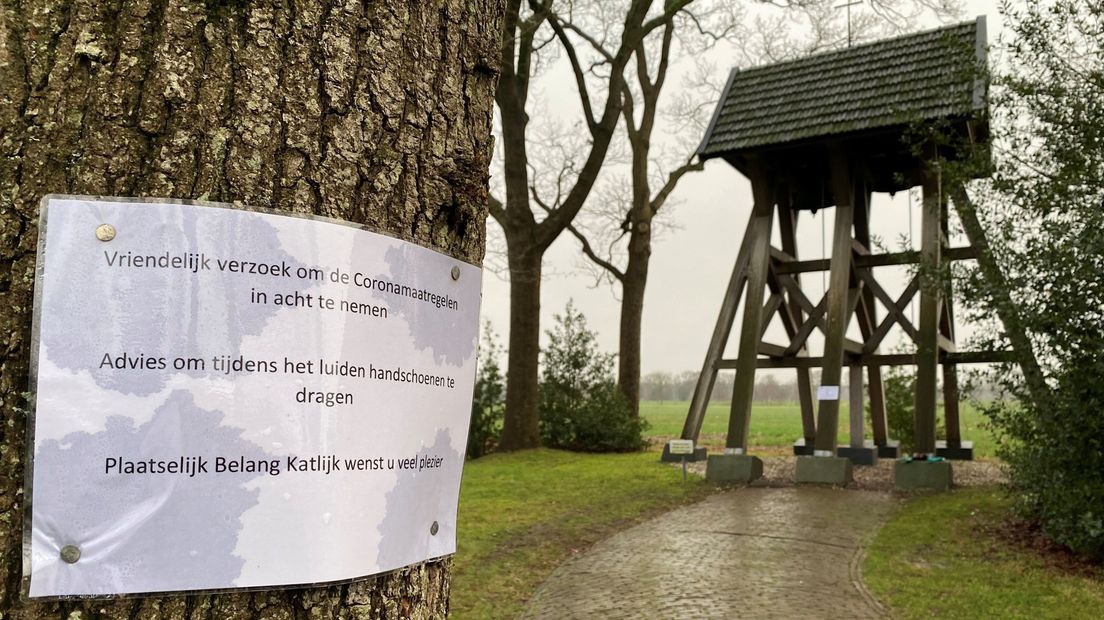 Vriendelijk verzoek om de Coronamaatregelen
in acht te nemen
Advies om tijdens het luiden handschoenen te
dragen
Plaatselijk Belang Katlijk wenst u veel plezier